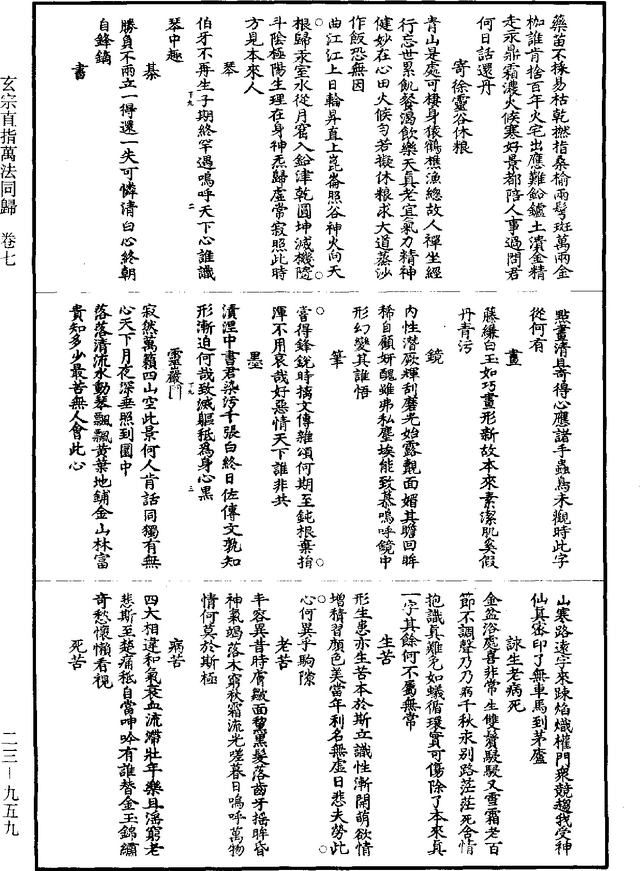 藥苗不採易枯乾撚指桑榆兩髩斑萬兩金
枷誰肯捨百年火宅出應難鉛鑪土潰金精
走汞鼎霜濃火候寒好景都陪人事過問君
何日話還丹
寄徐靈谷休粮
青山是處可棲身猿鶴樵漁總故人禪坐經
行忘世累飢餐渴飲樂天真老宜氣力精神
健妙在心田火候勻若擬休粮求大道蒸沙
作飯恐無因
曲江江上日輪昇直上崑崙照谷神火向天
根歸汞室水從月窟入鉛津乾圓坤減機隨
斗陰極陽生理在身神炁歸虛常寂照此時
方見本來人
琴
伯牙不再生子期終罕遇嗚呼天下心誰識
琴中趣
棊
勝負不兩立一得還一失可憐清白心終朝
自鋒鏑
書
點畫清且奇得心應諸手蟲鳥未觀時此字
從何有
畫
藤縑白玉如巧畫形新故本來素潔肌奚假
丹青污
鏡
內性潛厥輝刮磨光始露覿面媚其瞻回眸
稀自顧妍醜雖弗私塵埃能致慕嗚呼鏡中
形幻變其誰悟
筆
當得鋒銳時摛文傳雜頌何期至鈍根棄捐
渾不用哀哉好惡情天下誰非共
墨
漬涅中書君染污千張白終日佐傳文孰知
形漸迫何哉致滅軀秪爲身心黑
靈巖門
寂然萬籟四山空此景何人肯話同獨有無
心天下月夜深垂照到圜中
落落清流水動琴飄飄黃葉地鋪金山林富
貴知多少最苦無人會此心
山寒路遠字來踈焰熾權門衆競趨我受神
仙真密印了無車馬到茅廬
詠生老病死
金盆浴處喜非常生雙鬢駸駸又雪霜老百
節不調聲乃乃病千秋永別路茫茫死含情
抱識真難免如蟻循環實可傷除了本來真
一字其餘何不屬無常
生苦
形生患亦生苦本於斯立識性漸開萌欲情
增積習顏色美當年利名無虛日悲夫勞此
心何異乎駒隙
老苦
丰容異昔時膚皺面黧黑髮落齒牙搖眸昏
神氣竭落木窮秋霜流光嗟暮日嗚呼萬物
情何莫於斯極
病苦
四大相違和氣衰血流滯壯年樂且淫窮老
悲斯至楚痛秪自當呻吟有誰替金玉錦繡
奇愁懷懶看視
死苦
玄宗直指萬法同歸 卷七
二三—九五九